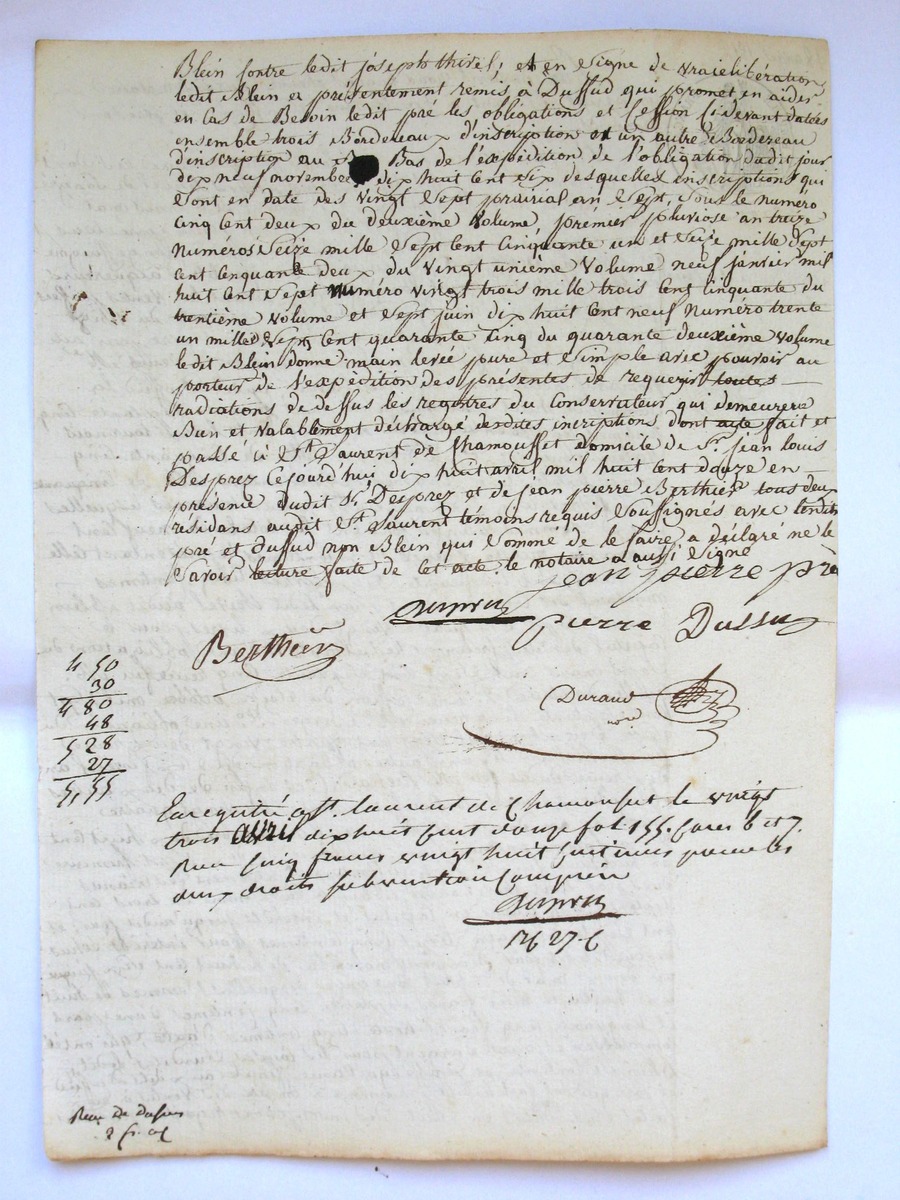 Blein contre ledit joseph thirel; et en Signe de vraie libération
ledit Blein a présentement remis à Dussud qui promet en aider
en Cas de Besoin ledit pré les obligations et Cession Cidevant datées
ensemble trois Bordereaux d'inscription et un autre Bordereau
d'inscription au Bas de l'expédition de l'obligation dudit jour
dix neuf novembre dix huit cent Six desquelles inscriptions qui
Sont en date des vingt Sept prairial an Sept, Sous le numéro
Cinq cent deux du deuxième volume, prémier pluviose an treize
Numéros Seize mille Sept cent Cinquante un et Seize mille Sept
cent Cinquante deux du vingt unième volume neuf janvier mil
huit cent Sept numéro vingt trois mille trois cent Cinquante du
trentième volume et Sept juin dix huit cent neuf Numéro trente
un mille Sept Cent quarante Cinq du quarante deuxième volume
ledit Blein donne main levée pure et Simple avec pouvoir au
porteur de l'expédition des présentes de requerir toutes
radiations de dessus les registres du Conservateur qui demeurera
Bien et valablement déchargé desdites incriptions dont acte fait et
passé à St. Laurent de Chamousset domicile de Sr. jean louis
Desprez Cejourd'hui dix huit avril mil huit cent douze en
présence dudit Sr. Desprez et de jean pierre Berthier tous deux
résidans audit St. Laurent témoins requis Soussignés avec lesdits
pré et dussud non Blein qui Sommé de le faire a déclaré ne le
Savoir lecture faite de cet acte. le notaire a aussi Signé
jean pierre pré
Pierre Dussud
Berthier
Durand
nore
450
30
480
48
528
27
5,55
Enregistré à St. laurent de Chamousset le vingt
trois avril dix huit cent douze fol 155. Cases 6 et 7.
Reçu Cinq francs vingt huit Centimes pour les
deux droits subvention comprise
5f 27c